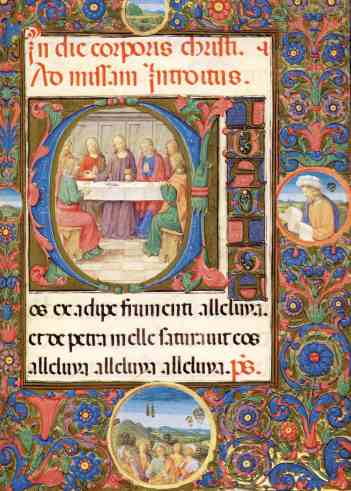 In die corporis christi.
Ad missam Introitus.
C
os ex adipe frumenti alleluya.
et de petra melle saturauit eos
alleluya alleluya alleluya. ps.